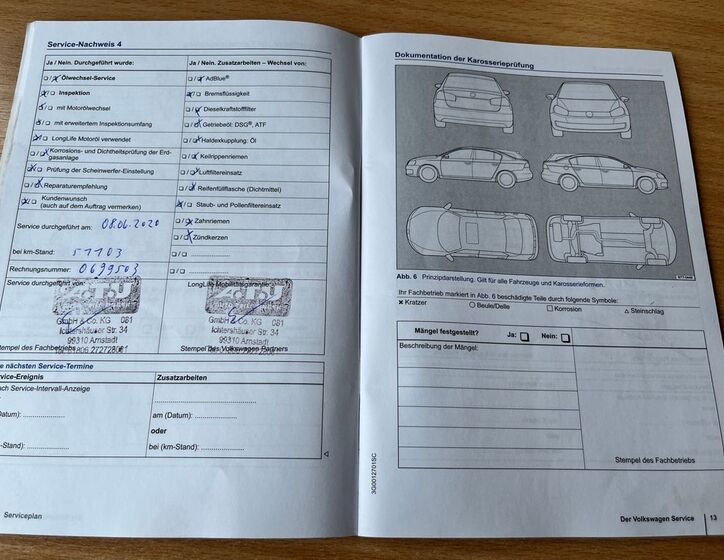 Service-Nachweis 4
Ja / Nein. Durchgeführt wurde:
Ölwechsel-Service
Inspektion
mit Motorölwechsel
mit erweitertem Inspektionsumfang
LongLife Motoröl verwendet
Korrosions- und Dichtheitsprüfung der Erd-
gasanlage
Prüfung der Scheinwerfer-Einstellung
Reparaturempfehlung
Kundenwunsch
(auch auf dem Auftrag vermerken)
Service durchgeführt am: 08.06.2020
bei km-Stand: 51103
Rechnungsnummer: 0699503
Service durchgeführt von:
GmbH & Co. KG 081
Ichtershäuser Str. 34
99310 Arnstadt
Stempel des Fachbetriebs
Ja / Nein. Zusatzarbeiten – Wechsel von:
AdBlue®
Bremsflüssigkeit
Dieselkraftstofffilter
Getriebeöl: DSG®, ATF
Haldexkupplung: Öl
Keilrippenriemen
Luftfiltereinsatz
Reifenfüllflasche (Dichtmittel)
Staub- und Pollenfiltereinsatz
Zahnriemen
Zündkerzen
LongLife Mobilitätsgarantie
GmbH & Co. KG 081
Ichtershäuser Str. 34
99310 Arnstadt
Stempel des Volkswagen Partners
nächsten Service-Termine
Zusatzarbeiten
Service-Intervall-Anzeige
am (Datum):
oder
bei (km-Stand):
Serviceplan
Dokumentation der Karosserieprüfung
Abb. 6 Prinzipdarstellung. Gilt für alle Fahrzeuge und Karosserieformen.
Ihr Fachbetrieb markiert in Abb. 6 beschädigte Teile durch folgende Symbole:
× Kratzer ○ Beule/Delle □ Korrosion △ Steinschlag
Mängel festgestellt? Ja: Nein:
Beschreibung der Mängel:
Stempel des Fachbetriebs
3G0012701SC
Der Volkswagen Service 13